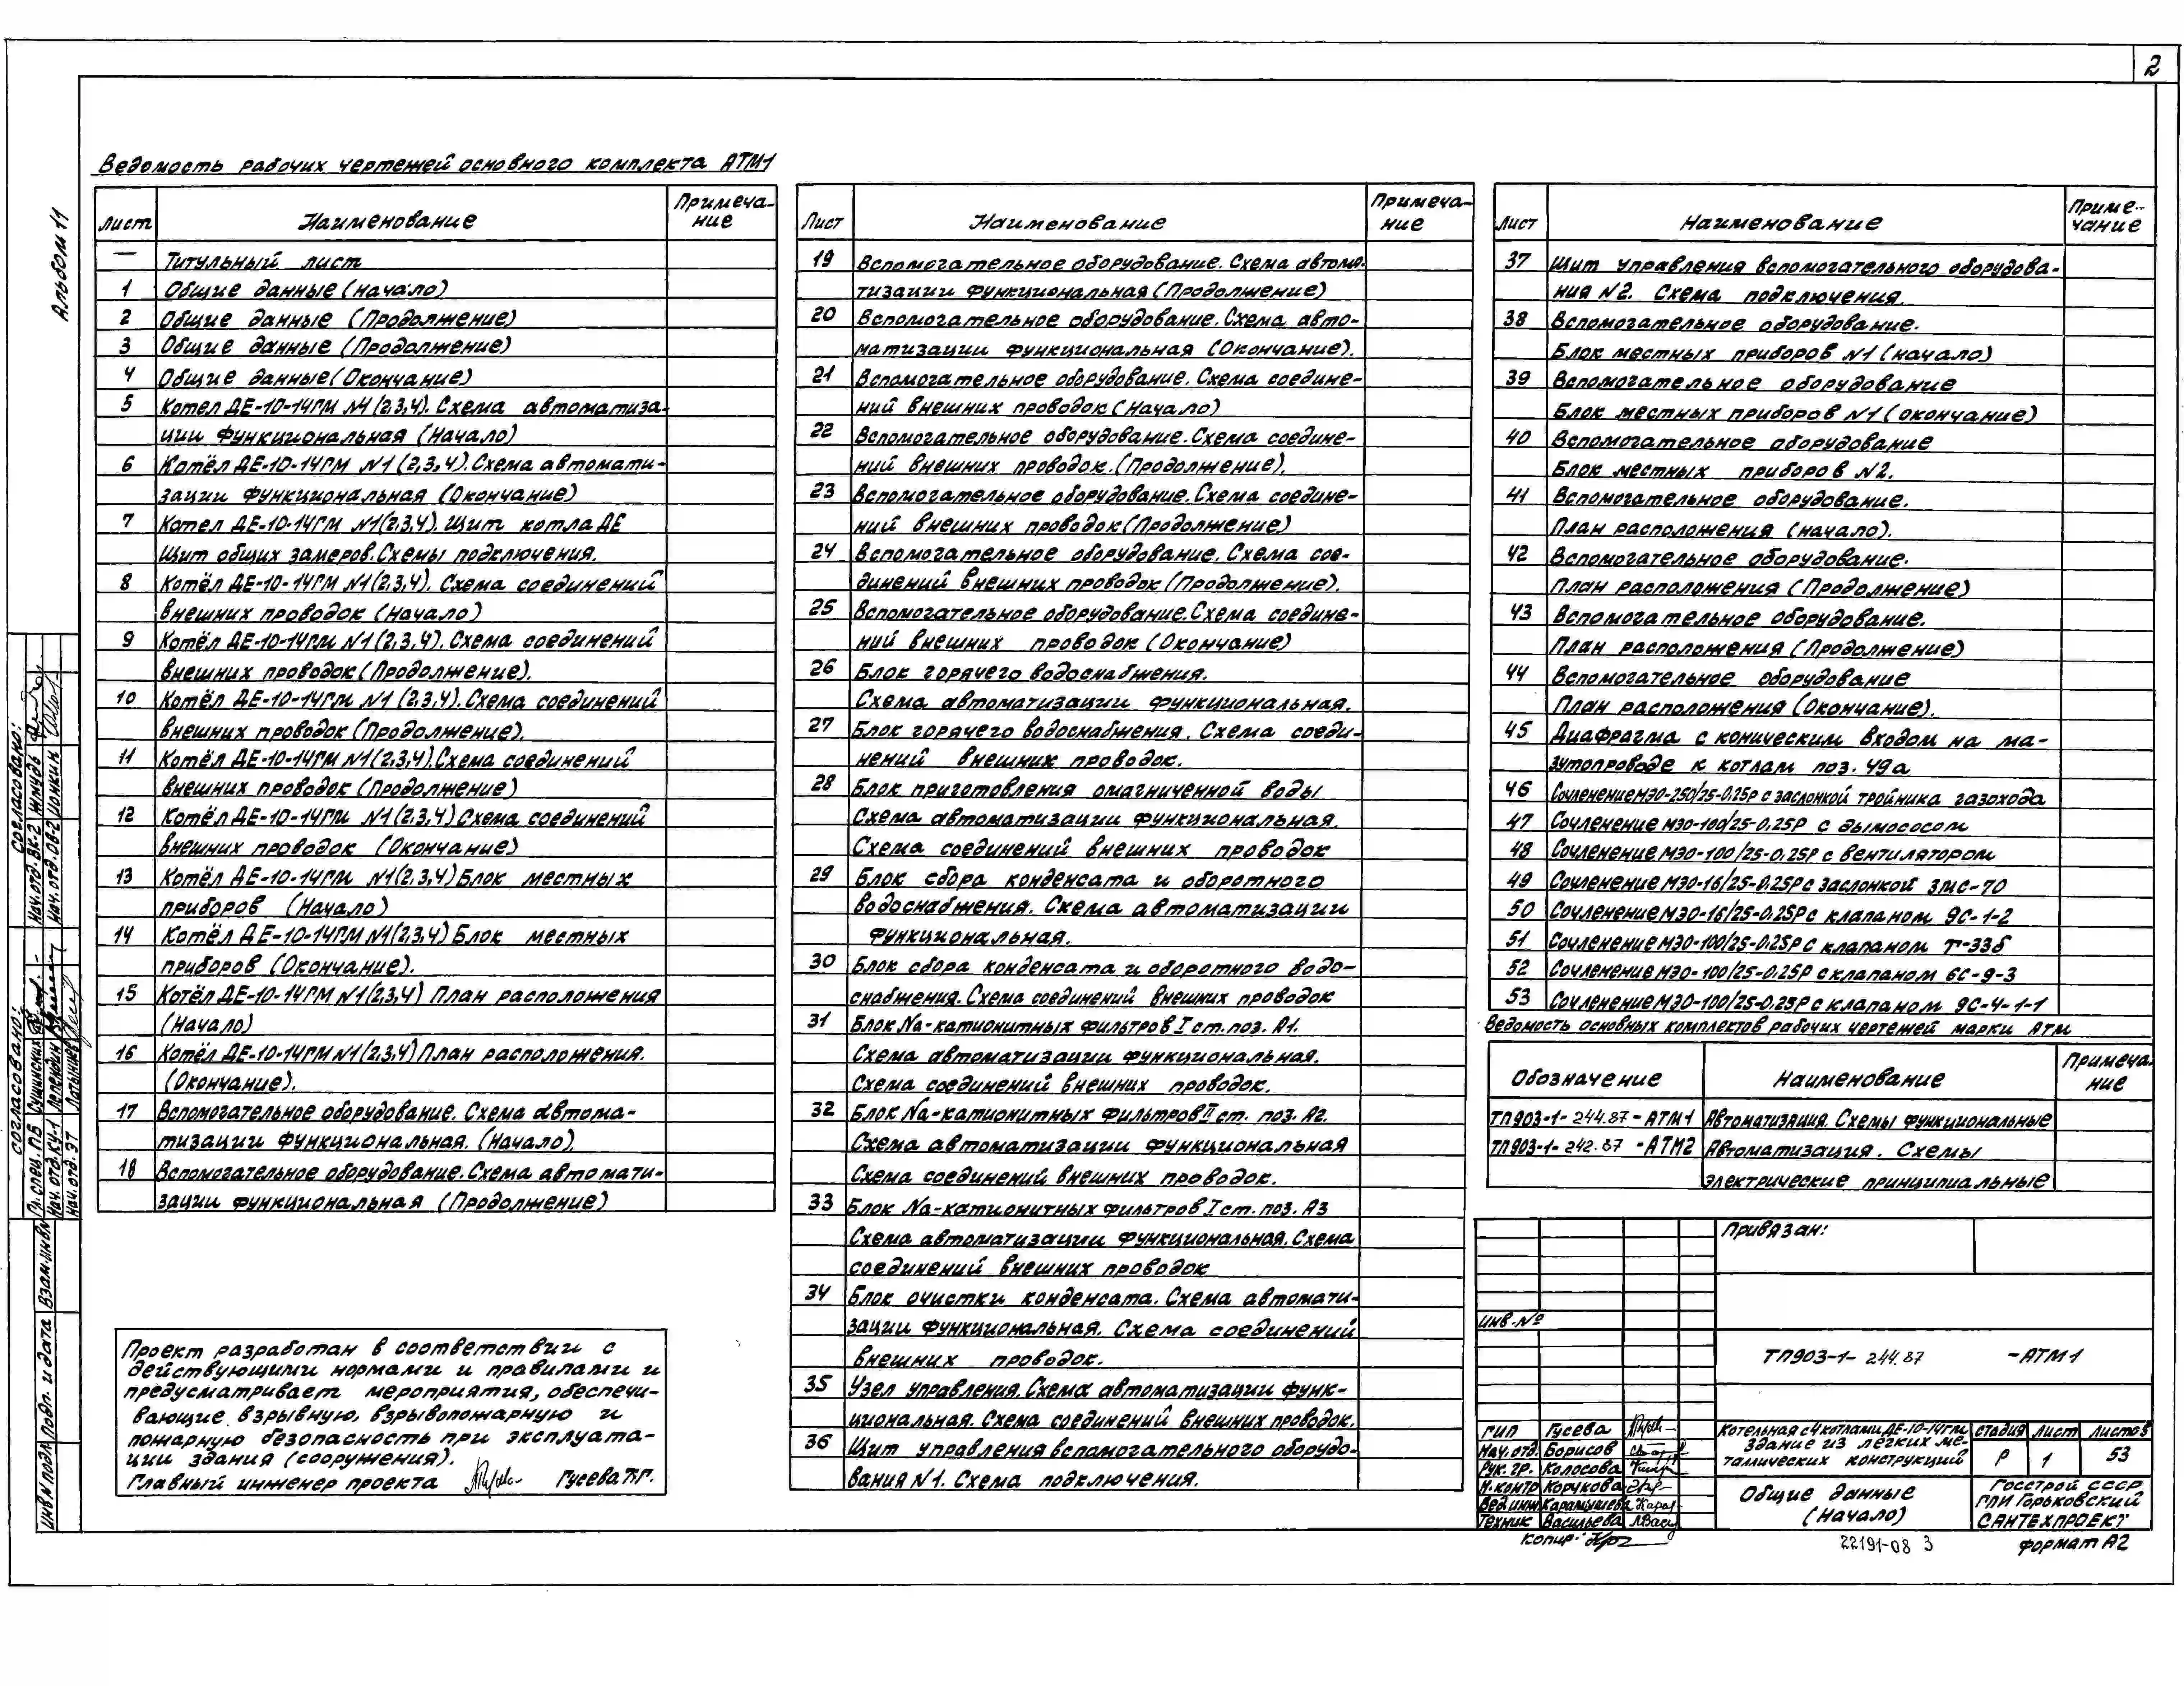 2
Альбом 11
Ведомость рабочих чертежей основного комплекта АТМ1
Лист Наименование Примеча-
ние
— Титульный лист
1 Общие данные (начало)
2 Общие данные (Продолжение)
3 Общие данные (Продолжение)
4 Общие данные (Окончание)
5 Котел ДЕ-10-14ГМ №1 (2,3,4). Схема автоматиза-
ции функциональная (Начало)
6 Котёл ДЕ-10-14ГМ №1 (2,3,4). Схема автомати-
зации функциональная (Окончание)
7 Котел ДЕ-10-14ГМ №1(2,3,4). Щит котла ДЕ
Щит общих замеров. Схемы подключения.
8 Котёл ДЕ-10-14ГМ №1(2,3,4). Схема соединений
внешних проводок (Начало)
9 Котёл ДЕ-10-14ГМ №1(2,3,4). Схема соединений
внешних проводок (Продолжение).
10 Котёл ДЕ-10-14ГМ №1 (2,3,4). Схема соединений
внешних проводок (Продолжение).
11 Котёл ДЕ-10-14ГМ №1(2,3,4). Схема соединений
внешних проводок (Продолжение)
12 Котёл ДЕ-10-14ГМ №1(2,3,4) Схема соединений
внешних проводок (Окончание)
13 Котёл ДЕ-10-14ГМ №1(2,3,4) Блок местных
приборов (Начало)
14 Котёл ДЕ-10-14ГМ №1(2,3,4) Блок местных
приборов (Окончание).
15 Котёл ДЕ-10-14ГМ №1(2,3,4) План расположения
(Начало)
16 Котёл ДЕ-10-14ГМ №1(2,3,4) План расположения.
(Окончание).
17 Вспомогательное оборудование. Схема автома-
тизации функциональная. (Начало).
18 Вспомогательное оборудование. Схема автомати-
зации функциональная (Продолжение)
Лист Наименование Примеча-
ние
19 Вспомогательное оборудование. Схема автома-
тизации функциональная (Продолжение)
20 Вспомогательное оборудование. Схема авто-
матизации функциональная (Окончание).
21 Вспомогательное оборудование. Схема соедине-
ний внешних проводок (Начало)
22 Вспомогательное оборудование. Схема соедине-
ний внешних проводок. (Продолжение).
23 Вспомогательное оборудование. Схема соедине-
ний внешних проводок (Продолжение)
24 Вспомогательное оборудование. Схема сое-
динений внешних проводок (Продолжение).
25 Вспомогательное оборудование. Схема соедине-
ний внешних проводок (Окончание)
26 Блок горячего водоснабжения.
Схема автоматизации функциональная.
27 Блок горячего водоснабжения. Схема соеди-
нений внешних проводок.
28 Блок приготовления омагниченной воды
Схема автоматизации функциональная.
Схема соединений внешних проводок
29 Блок сбора конденсата и оборотного
водоснабжения. Схема автоматизации
функциональная.
30 Блок сбора конденсата и оборотного водо-
снабжения. Схема соединений внешних проводок
31 Блок Na-катионитных фильтров I ст. поз. А1.
Схема автоматизации функциональная.
Схема соединений внешних проводок.
32 Блок Na-катионитных фильтров II ст. поз. А2.
Схема автоматизации функциональная
Схема соединений внешних проводок.
33 Блок Na-катионитных фильтров I ст. поз. А3
Схема автоматизации функциональная. Схема
соединений внешних проводок
34 Блок очистки конденсата. Схема автомати-
зации функциональная. Схема соединений
внешних проводок.
35 Узел управления. Схема автоматизации функ-
циональная. Схема соединений внешних проводок.
36 Щит управления вспомогательного оборудо-
вания №1. Схема подключения.
Лист Наименование Приме-
чание
37 Щит управления вспомогательного оборудова-
ния №2. Схема подключения.
38 Вспомогательное оборудование.
Блок местных приборов №1 (начало)
39 Вспомогательное оборудование
Блок местных приборов №1 (окончание)
40 Вспомогательное оборудование
Блок местных приборов №2.
41 Вспомогательное оборудование.
План расположения (начало).
42 Вспомогательное оборудование.
План расположения (Продолжение)
43 Вспомогательное оборудование.
План расположения (Продолжение)
44 Вспомогательное оборудование
План расположения (Окончание).
45 Диафрагма с коническим входом на ма-
зутопроводе к котлам поз. 49а
46 Сочленение МЭО-250/25-0.25Р с заслонкой тройника газохода
47 Сочленение МЭО-100/25-0.25Р с дымососом
48 Сочленение МЭО-100/25-0.25Р с вентилятором
49 Сочленение МЭО-16/25-0.25Р с заслонкой ЗМС-70
50 Сочленение МЭО-16/25-0.25Р с клапаном 9С-1-2
51 Сочленение МЭО-100/25-0.25Р с клапаном Т-33б
52 Сочленение МЭО-100/25-0.25Р с клапаном 6С-9-3
53 Сочленение МЭО-100/25-0.25Р с клапаном 9С-4-1-1
Ведомость основных комплектов рабочих чертежей марки АТМ
Обозначение Наименование Примеча-
ние
ТП903-1-244.87-АТМ1 Автоматизация. Схемы функциональные
ТП903-1-242.87-АТМ2 Автоматизация. Схемы
электрические принципиальные
Проект разработан в соответствии с
действующими нормами и правилами и
предусматривает мероприятия, обеспечи-
вающие взрывную, взрывопожарную и
пожарную безопасность при эксплуата-
ции здания (сооружения).
Главный инженер проекта Гусева Т.Г.
Согласовано:
Нач. отд. ВК-2 Жмудь
Нач. отд. ОВ-2 Ионкин
Согласовано:
Гл. спец. ПБ Сушинских
Нач. отд. КУ-1 Лепендин
Нач. отд. ЭТ Латынцев
Взам. инв. №
Подп. и дата
Инв. № подл.
Привязан:
Инв. №
ТП903-1-244.87 -АТМ1
ГИП Гусева
Нач. отд. Борисов
Рук. гр. Колосова
Н. контр Корчкова
Вед. инж Карамышева
Техник Васильева
Котельная с 4 котлами ДЕ-10-14ГМ
здание из легких ме-
таллических конструкций
Стадия Лист Листов
Р 1 53
Общие данные
(Начало)
Госстрой СССР
ГПИ Горьковский
САНТЕХПРОЕКТ
Копир:
22191-08 3
Формат А2